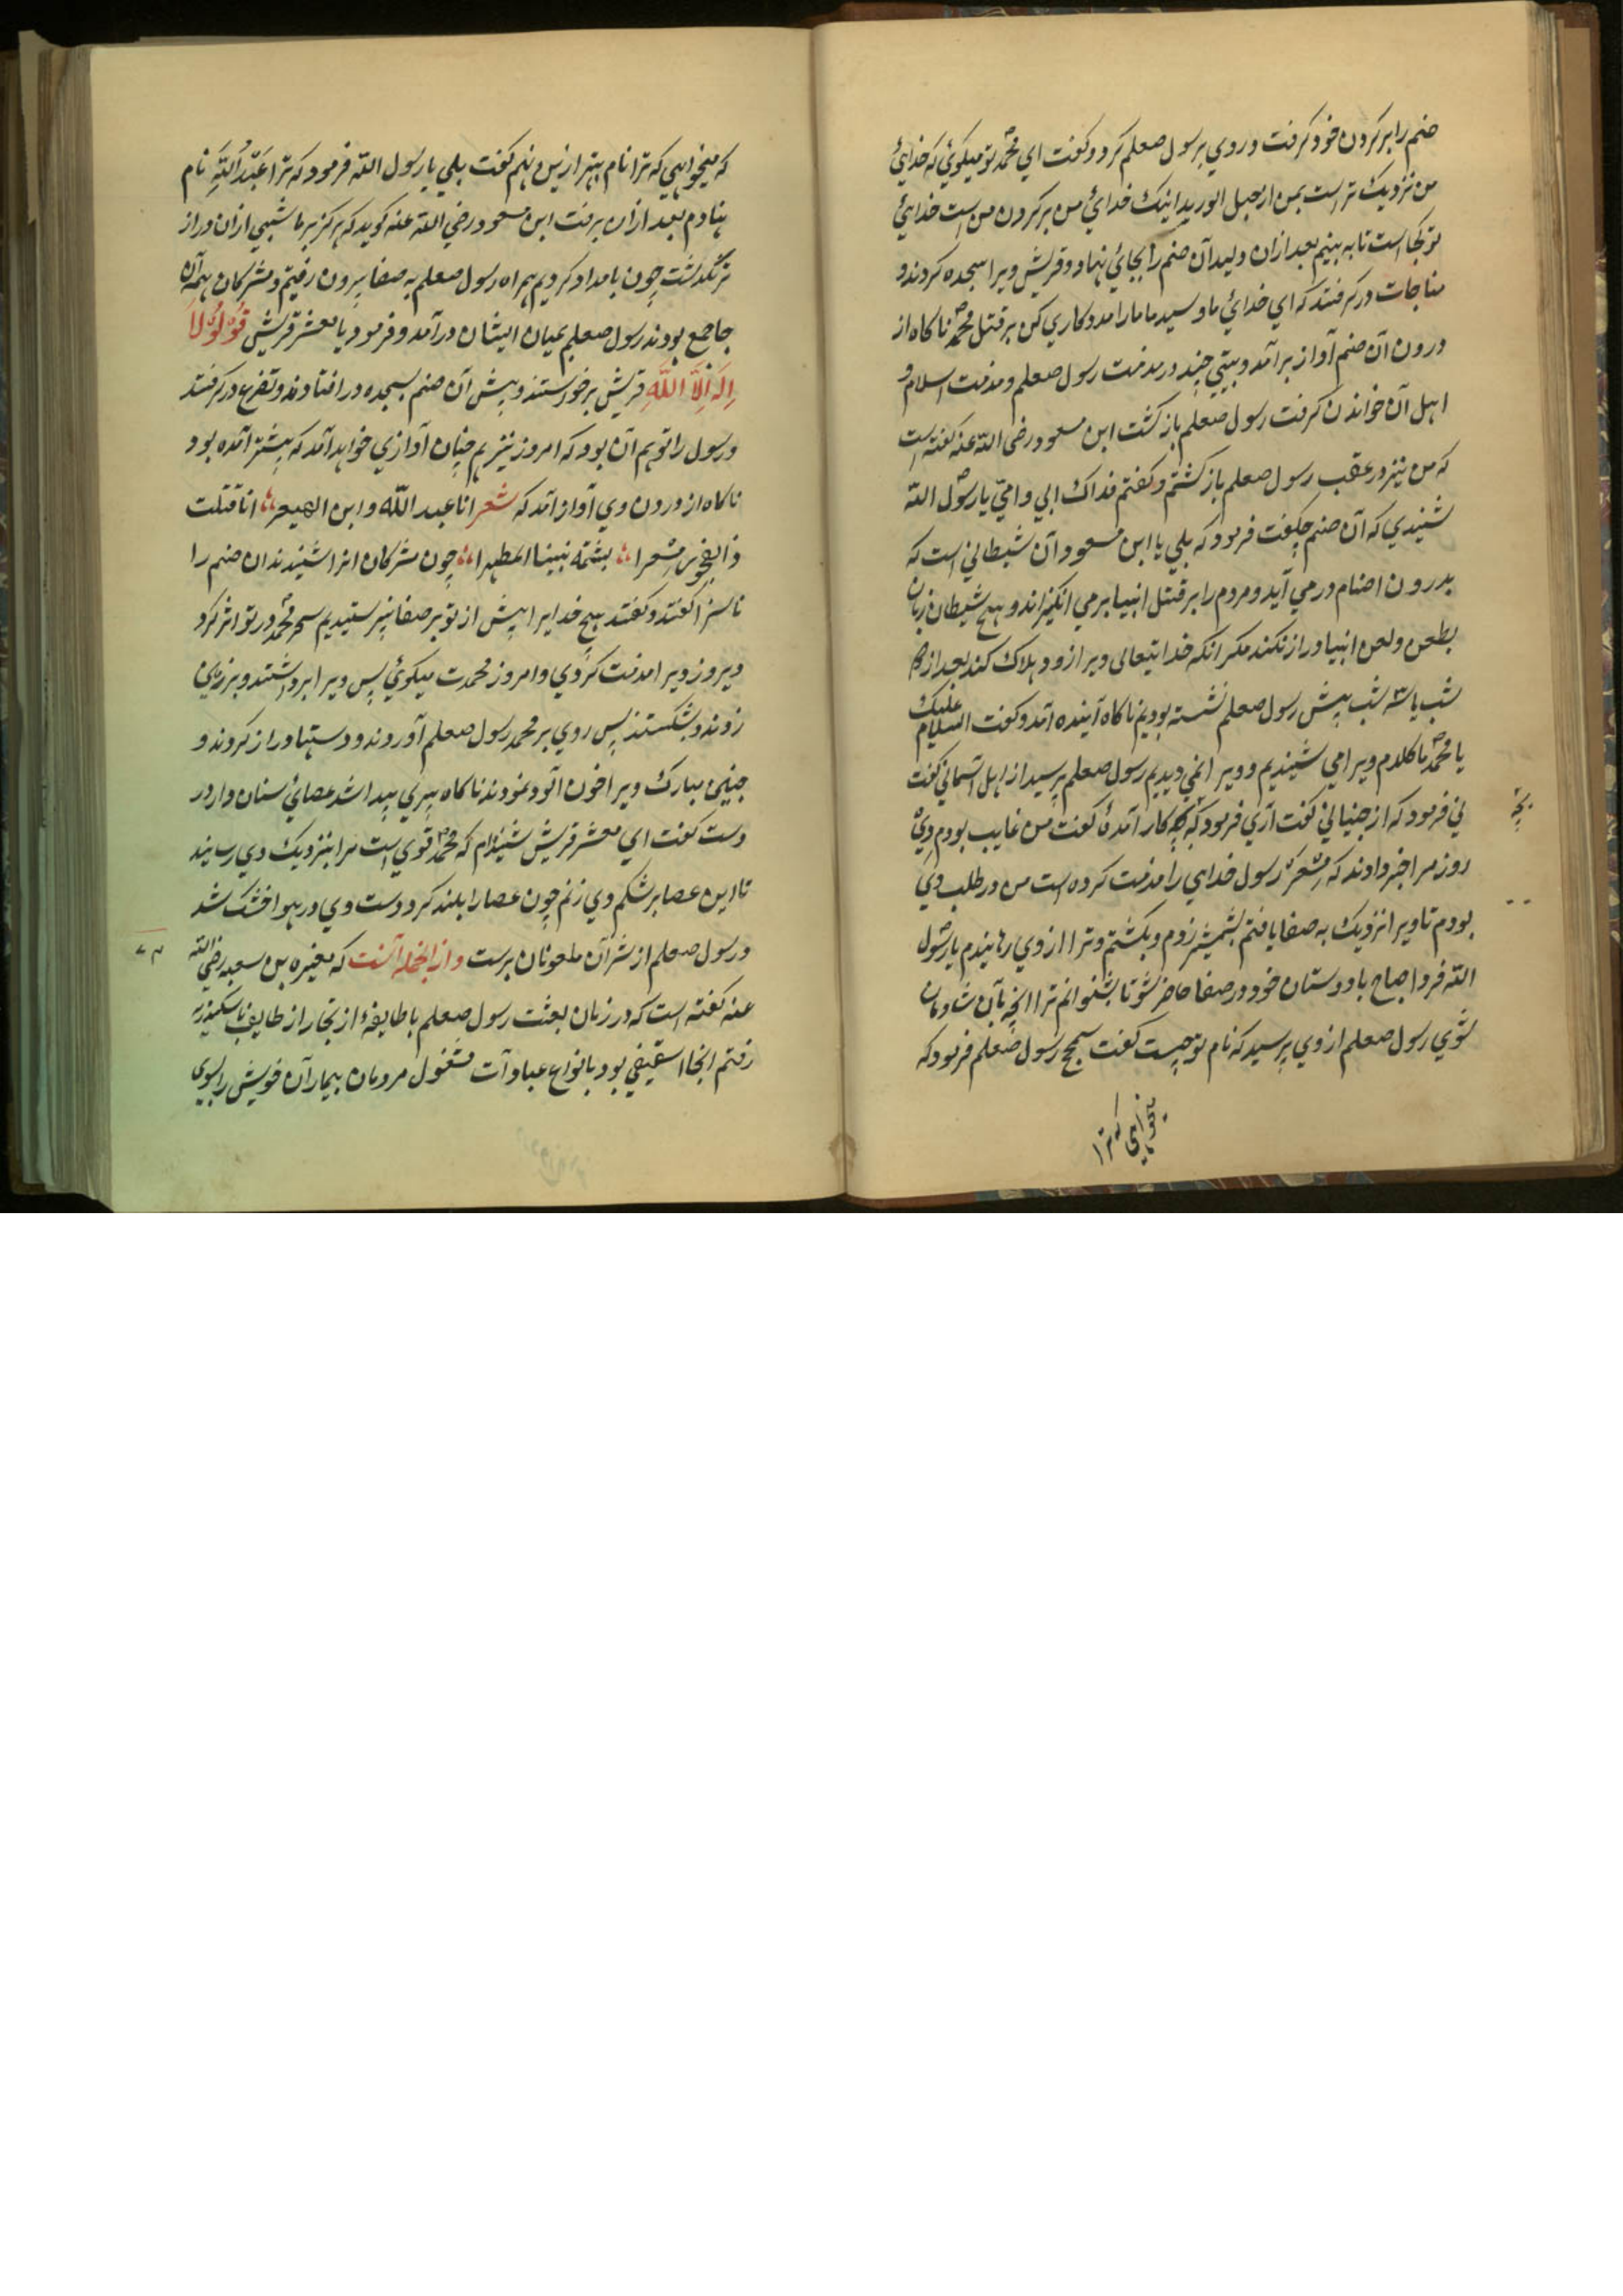 صنم را بر کردن خود کرفت و روي برسول صعلم کرد و کفت اي محمد تو میکوئي که خدائي
من نزدیك تر است بمن از حبل الورید اینك خدائي من بر کردن من است خدائي
تو کجا است تا به بینیم بعد ازان ولید آن صنم را بجائي نهاد و قریش ویرا سجده کردند و
مناجات در کرفتند که اي خدائي ما و سید ما ما را مدد کاري کن بر قتل محمد ناکاه از
درون آن صنم آواز بر آمد و بیتي چند در مذمت رسول صعلم و مذمت اسلام و
اهل آن خواندن کرفت رسول صعلم باز کشت ابن مسعود رضی الله عنه کفته است
که من نیز در عقب رسول صعلم باز کشتم و کفتم فداك ابي و امي یا رسول الله
شنیدي که آن صنم چکفت فرمود که بلي یا ابن مسعود آن شیطاني است که
بدرون اصنام در مي آید و مردم را بر قتل انبیا بر مي انکیزاند و هیچ شیطان زبان
بطعن و لعن انبیا دراز نکند مکر انکه خدایتعالی ویرا زود هلاك کند بعد از دو
شب یا سه شب پیش رسول صعلم نشسته بودیم ناکاه آینده آمد و کفت السلام علیك
یا محمد ما کلام ویرا مي شنیدیم و ویرا نمي دیدیم رسول صعلم پرسید از اهل آسماني کفت
ني فرمود که از جنیاني کفت آري فرمود که بچه کار آمدهٔ کفت من غایب بودم دي
روز مرا خبر دادند که مسعر رسول خدایي را مذمت کرده است من در طلب وي
بودم تا ویرا نزدیك به صفا یافتم بشمشیر زدم و بکشتم و ترا از وي رهانیدم یا رسول
الله فردا صباح با دوستان خود در صفا حاضر شو تا بشنوانم ترا انچه بآن شادمان
شوي رسول صعلم از وي پرسید که نام تو چیست کفت سمحج رسول صعلم فرمود که
میخواهي که ترا
که میخواهي که ترا نام بهتر ازین نهم کفت بلي یا رسول الله فرمود که ترا عَبْدُ اللّٰهِ نام
نهادم بعد ازان برفت ابن مسعود رضي الله عنه کوید که هرکز بر ما شبي ازان دراز
تر نکذشت چون بامداد کردیم همراه رسول صعلم به صفا بیرون رفتیم و مشرکان همه آن
جا جمع بودند رسول صعلم بمیان ایشان درآمد و فرمود یا معشر قریش قُوْلُوْ لَا
اِلٰهَ اِلَّا اللّٰهُ قریش برخواستند و پیش آن صنم بسجده در افتادند و تضرع در کرفتند
و رسول را توهم آن بود که امروز نیز هم چنان آوازي خواهد آمد که پیشتر آمده بود
ناکاه از درون وي آواز آمد که شعر انا عبد الله و ابن الهیعرا انا قتلت
ذا الفجور مسعرا بشتمه نبینا المطهرا چون مشرکان انرا شنیدند ان صنم را
ناسزا کفتند و کفتند هیچ خدایرا پیش از تو بر صفا نپرستیدیم سحر محمد در تو اثر کرد
دیروز ویرا مذمت کردي و امروز محمدت میکوئي پس ویرا برداشتند و بر زمین
زدند و بشکستند پس روي بر محمد رسول صعلم آوردند و دستها دراز کردند و
جبین مبارك ویرا خون آلود نمودند ناکاه پیري پیدا شد عصائي سنان دار در
دست کفت اي معشر قریش شنیدم که محمد قوي است مرا بنزدیك وي رسانید
تا این عصا بر شکم وي زنم چون عصا را بلند کرد دست وي در هوا خشك شد
و رسول صعلم از شر آن ملعونان برست و از انجمله آنست که مغیره بن سعبه رضي الله
عنه کفته است که در زمان بعثت رسول صعلم با طایفهٔ از تجار از طایف باسکندریه
رفتم انجا اسقیفي بود بانواع عبادات مشغول مردمان بیماران خویش را بسوي